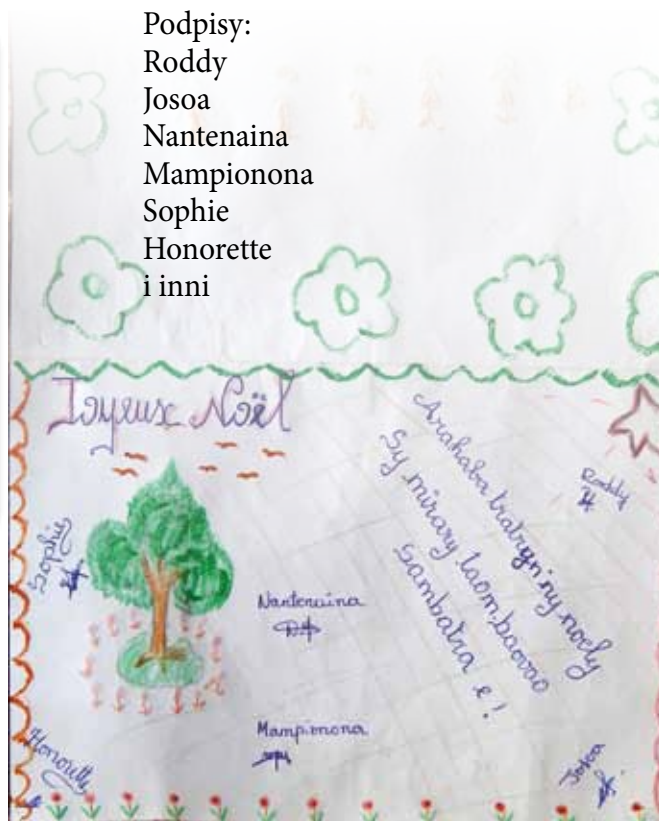 Podpisy:
Roddy
Josoa
Nantenaina
Mampionona
Sophie
Honorette
i inni
Joyeux Noël
Arahaba tratryn'ny noely
Sy mirary taom-baovao
Sambatra e!
Roddy
Sophie
Nantenaina
Mampionona
Honorette
Josoa